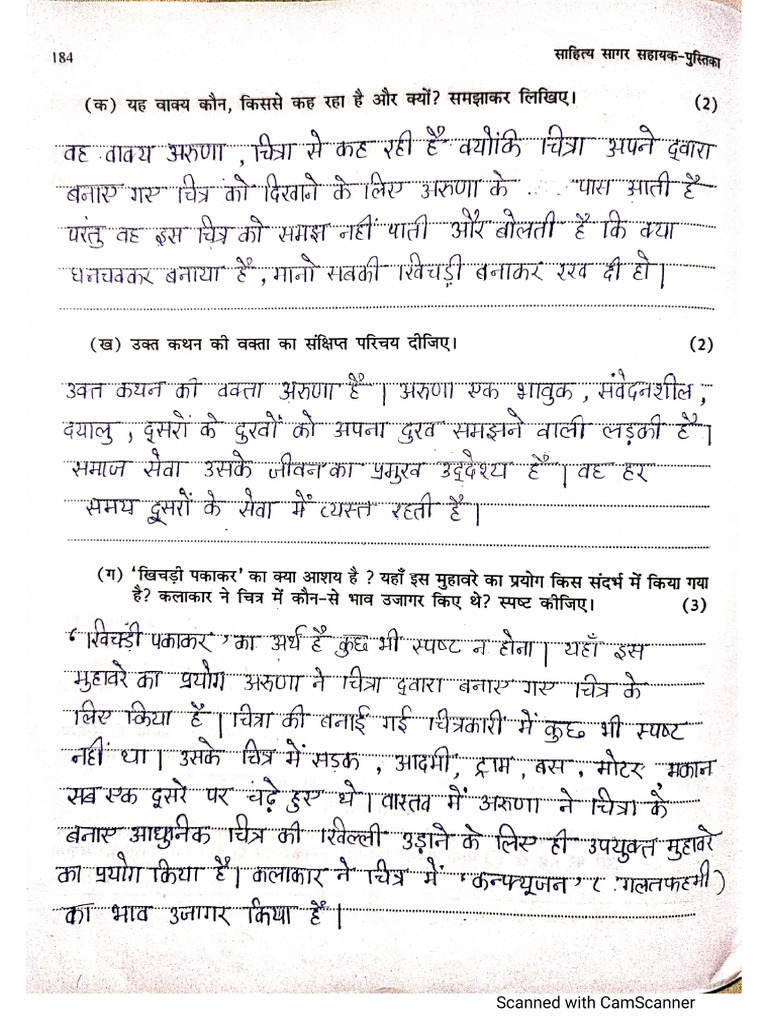 184
साहित्य सागर सहायक-पुस्तिका
(क) यह वाक्य कौन, किससे कह रहा है और क्यों? समझाकर लिखिए। (2)
वह वाक्य अरुणा , चित्रा से कह रही है क्योंकि चित्रा अपने द्वारा
बनाए गए चित्र को दिखाने के लिए अरुणा के .... पास आती है
परंतु वह इस चित्र को समझ नहीं पाती और बोलती है कि क्या
घनचक्कर बनाया है , मानो सबकी खिचड़ी बनाकर रख दी हो।
(ख) उक्त कथन की वक्ता का संक्षिप्त परिचय दीजिए। (2)
उक्त कथन की वक्ता अरुणा है। अरुणा एक भावुक , संवेदनशील ,
दयालु , दूसरों के दुखों को अपना दुख समझने वाली लड़की है।
समाज सेवा उसके जीवन का प्रमुख उद्देश्य है। वह हर
समय दूसरों के सेवा में व्यस्त रहती है।
(ग) 'खिचड़ी पकाकर' का क्या आशय है ? यहाँ इस मुहावरे का प्रयोग किस संदर्भ में किया गया
है? कलाकार ने चित्र में कौन-से भाव उजागर किए थे? स्पष्ट कीजिए। (3)
'खिचड़ी पकाकर' का अर्थ है कुछ भी स्पष्ट न होना। यहाँ इस
मुहावरे का प्रयोग अरुणा ने चित्रा द्वारा बनाए गए चित्र के
लिए किया है। चित्रा की बनाई गई चित्रकारी में कुछ भी स्पष्ट
नहीं था। उसके चित्र में सड़क , आदमी, ट्राम , बस , मोटर , मकान
सब एक दूसरे पर चढ़े हुए थे। वास्तव में अरुणा ने चित्रा के
बनाए आधुनिक चित्र की खिल्ली उड़ाने के लिए ही उपयुक्त मुहावरे
का प्रयोग किया है। कलाकार ने चित्र में 'कन्फ्यूजन' ( गलतफहमी)
का भाव उजागर किया है।
Scanned with CamScanner